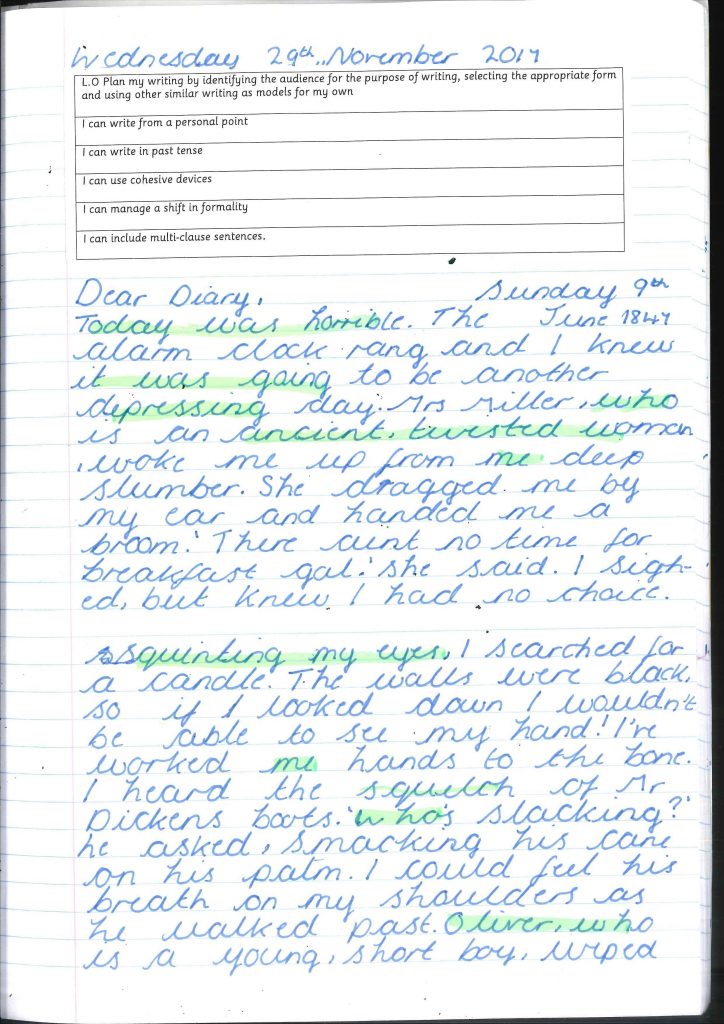 Wednesday 29th November 2017
L.O Plan my writing by identifying the audience for the purpose of writing, selecting the appropriate form
and using other similar writing as models for my own
I can write from a personal point
I can write in past tense
I can use cohesive devices
I can manage a shift in formality
I can include multi-clause sentences.
Dear Diary, Sunday 9th
Today was horrible. The June 1847
alarm clock rang and I knew
it was going to be another
depressing day. Mrs Miller, who
is an ancient, twisted woman
, woke me up from me deep
slumber. She dragged me by
my ear and handed me a
broom.' There aint no time for
breakfast gal.' she said. I sigh-
ed, but knew I had no choice.
squinting my eyes, I searched for
a candle. The walls were black,
so if I looked down I wouldn't
be able to see my hand! I've
worked me hands to the bone.
I heard the squelch of Mr
Dickens boots. 'who's slacking?'
he asked, smacking his cane
on his palm. I could feel his
breath on my shoulders as
he walked past. Oliver, who
is a young, short boy, wiped